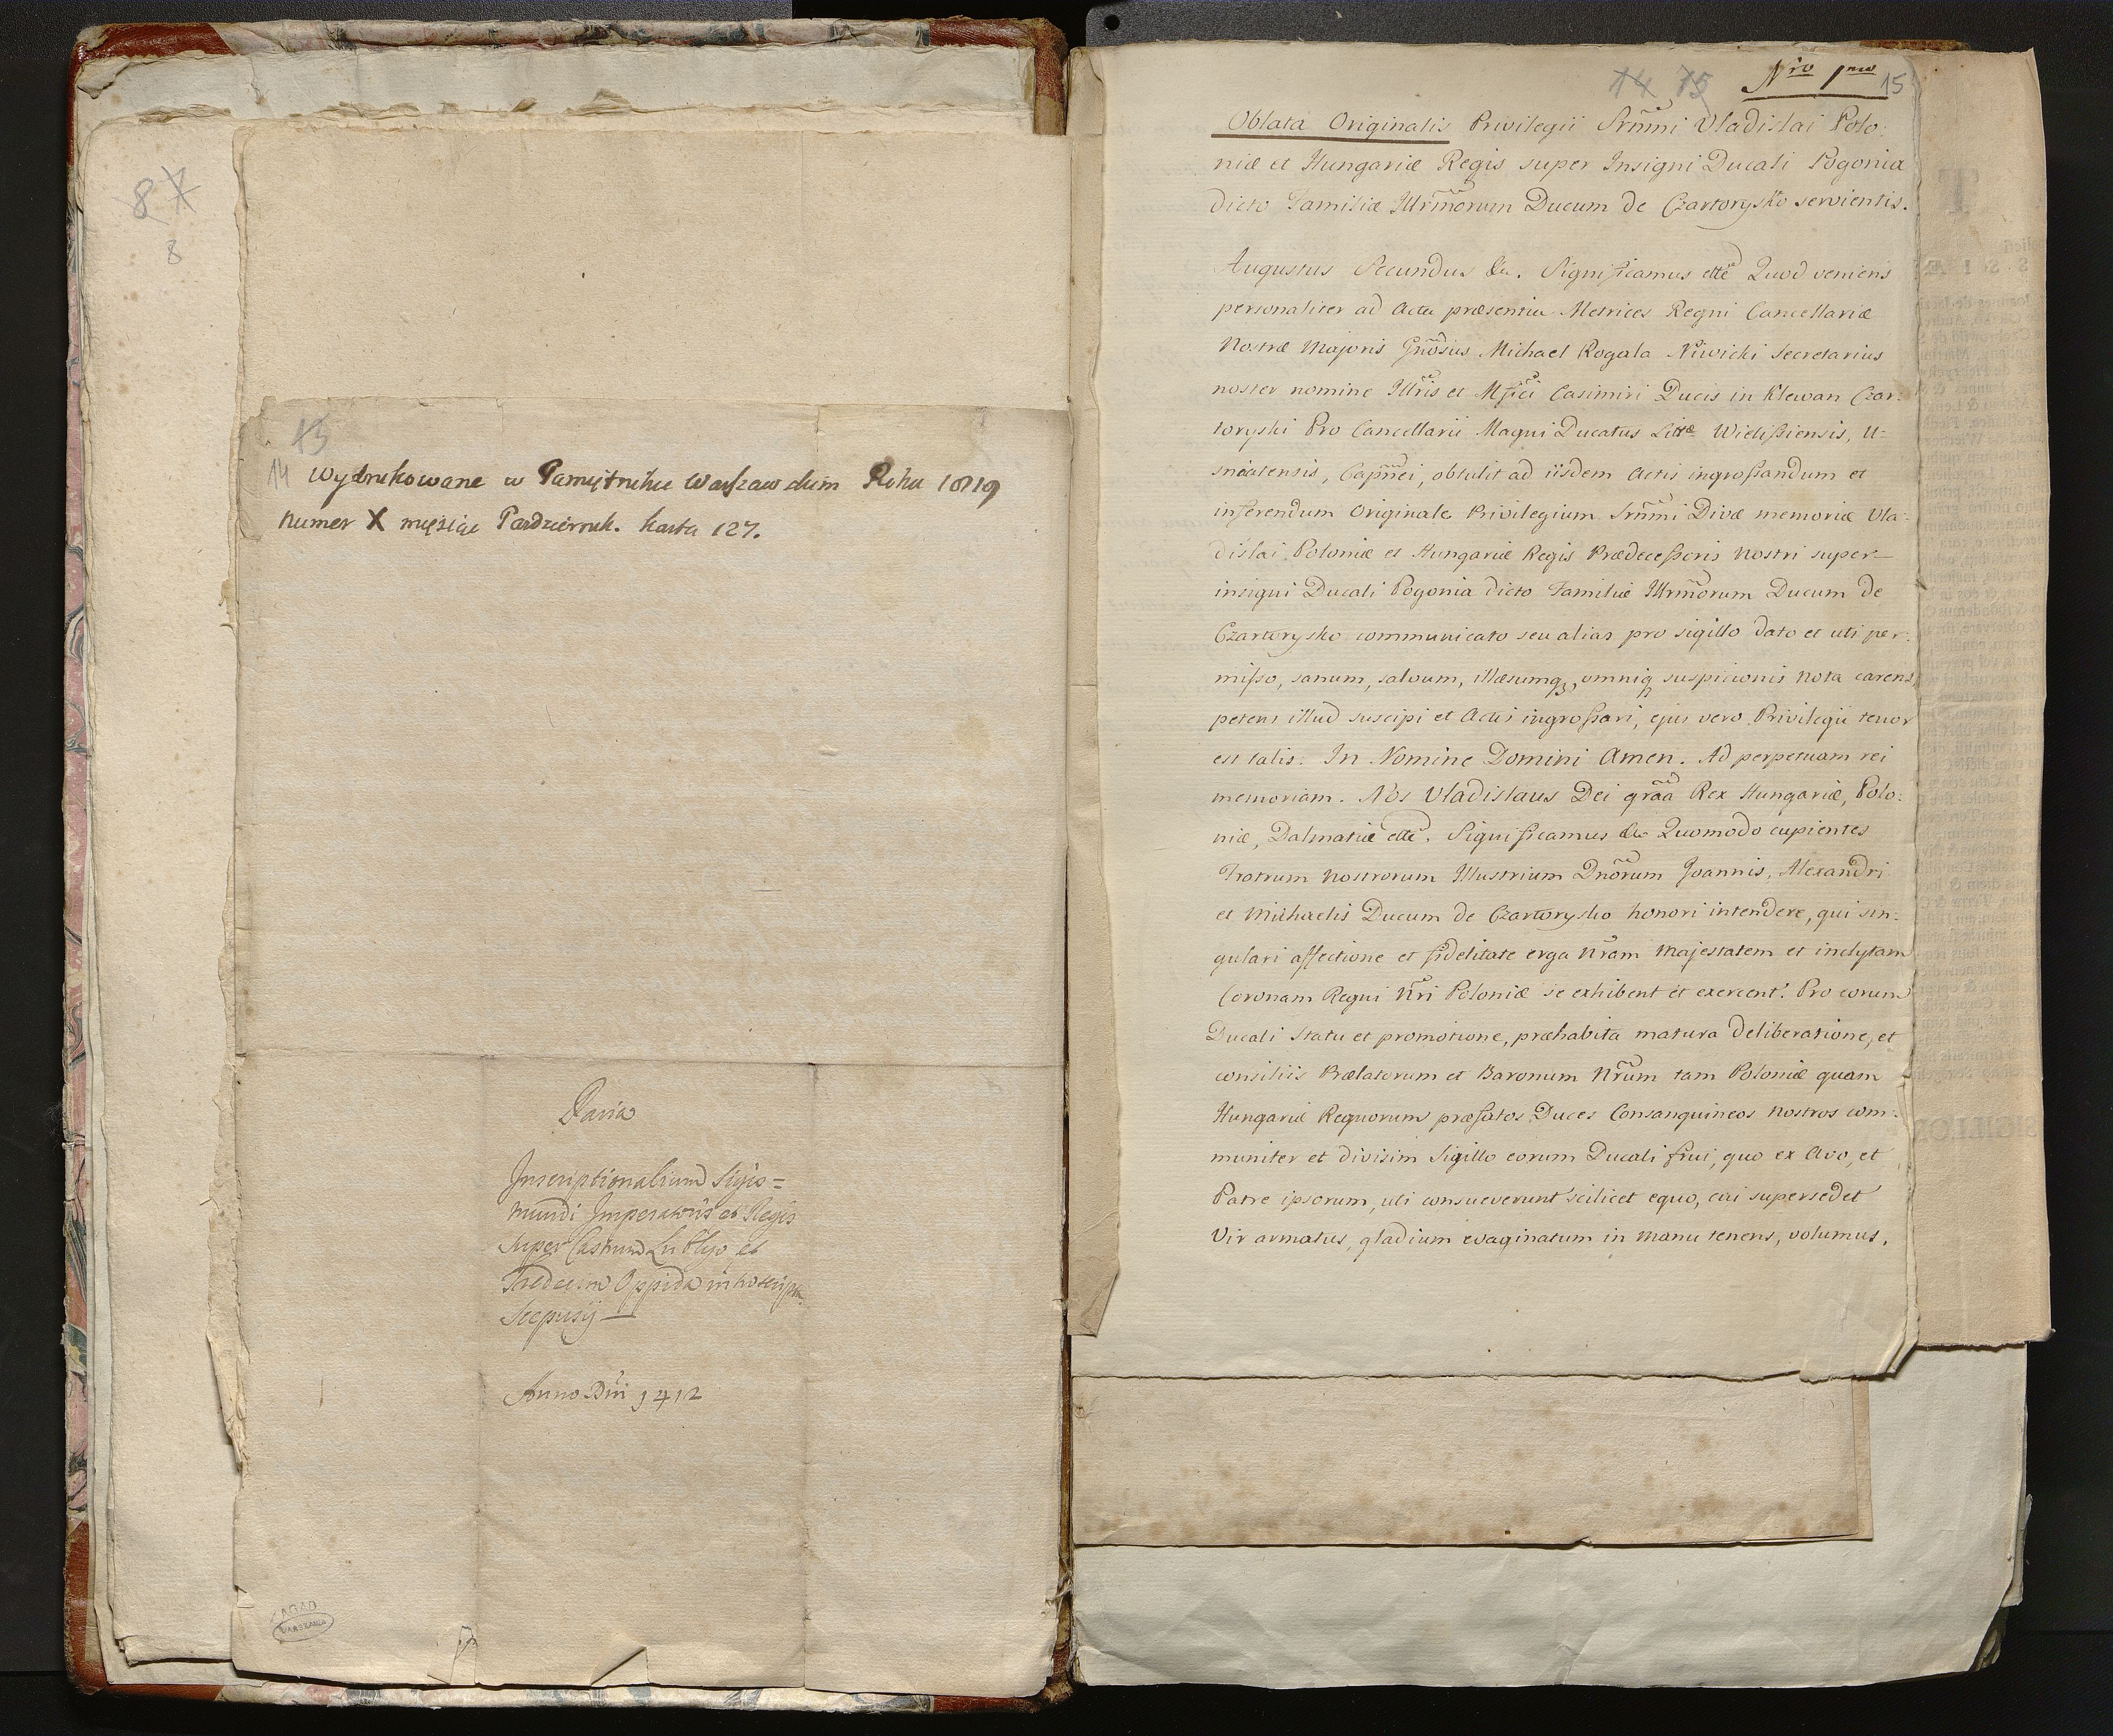 8 7
8
13
14
Wydrukowane w Pamiętniku Warszawskim Roku 1819
Numer X miesiąc Pazdziernik. karta 127.
Paria
Inscriptionalium Sigis=
mundi Imperatoris et Regis
super Castrum Lublyo et
Tredecim Oppida
Scepusij
Anno Dni 1412
AGAD
WARSZAWA
14 15 Nro 1mo 15
Oblata Originalis Privilegii Srmmi Vladislai Polo:
niæ et Hungariæ Regis super Insigni Ducali Pogonia
dicto Familiæ Illrmorum Ducum de Czartorysko servientis.
Augustus Secundus &c. Significamus ettc Quod veniens
personaliter ad Acta præsentia Metrices Regni Cancellariæ
Nostræ Majoris Gnosus Michael Rogala Niwicki Secretarius
noster nomine Illris et Mfici Casimiri Ducis in Klewan Czar:
toryski Pro Cancellarii Magni Ducatus Littæ Wielißiensis, U:
sniatensis, Capnei, obtulit ad iisdem Actis ingroßandum et
inserendum Originale Privilegium Srmmi Divæ memoriæ Vla:
dislai Poloniæ et Hungariæ Regis Prædeceßoris Nostri super
insigni Ducali Pogonia dicto Familiæ Illrmorum Ducum de
Czartorysko communicato seu alias pro sigillo dato et uti per:
mißo, sanum, salvum, illæsumq, omniq suspicionis nota carens
petens illud suscipi et Actis ingroßari, ejus vero Privilegii tenor
est talis. In Nomine Domini Amen. Ad perpetuam rei
memoriam. Nos Vladislaus Dei graa Rex Hungariæ, Polo:
niæ, Dalmatiæ ettc. Significamus &c Quomodo cupientes
Fratrum Nostrorum Illustrium Dnorum Joannis, Alexandri
et Michaelis Ducum de Czartorysko honori intendere, qui sin:
gulari affectione et fidelitate erga Nram Majestatem et inclytam
Coronam Regni Nri Poloniæ se exhibent et exercent. Pro eorum
Ducali Statu et promotione, præhabita matura deliberatione, et
consiliis Prælatorum et Baronum Nrum tam Poloniæ quam
Hungariæ Regnorum præfatos Duces Consanguineos Nostros com:
muniter et divisim Sigillo eorum Ducali frui, quo ex Avo, et
Patre ipsorum, uti consueverunt scilicet equo, cui supersedet
Vir armatus, gladium evaginatum in manu tenens, volumus,